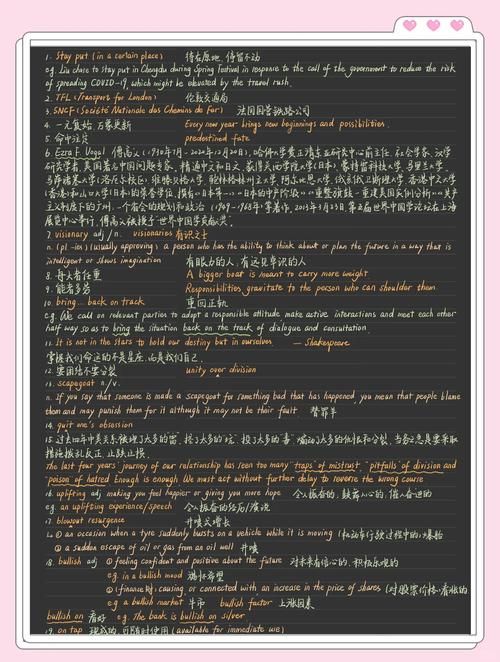 1. Stay put (in a certain place) 待在原地, 停留不动
e.g. Liu chose to stay put in Chengdu during Spring Festival in response to the call of the government to reduce the risk
of spreading COVID-19, which might be elevated by the travel rush.
2. TFL (Transport for London) 伦敦交通局
3. SNCF (Société Nationale des Chemins de Far) 法国国营铁路公司
4. 一元复始, 万象更新 Every new year brings new beginnings and possibilities.
5. 命中注定 predestined fate
6. Ezra F. Vogel 傅高义 (1930年7月-2020年12月20日), 哈佛大学费正清东亚研究中心前主任, 社会学家, 汉学
研究学者, 美国著名中国问题专家, 精通中文和日文,
7. visionary adj / n. visionaries 有识之士
n. (pl -ies) (usually approving) a person who has the ability to think about or plan the future in a way that is
intelligent or shows imagination 有眼力的人, 有远见卓识的人
8. 船大者任重 A bigger boat is meant to carry more weight
9. 能者多劳 Responsibilities gravitate to the person who can shoulder them.
10. bring... back on track 重回正轨
e.g. We call on relevant parties to adopt a responsible attitude make active interactions and meet each other
half way so as to bring the situation back on the track of dialogue and consultation.
11. It is not in the stars to hold our destiny but in ourselves. — Shakespeare
掌握我们命运的不是星座, 而是我们自己.
12. 要团结不要分裂 unity over division
13. scapegoat n/v.
n. If you say that someone is made a scapegoat for something bad that has happened, you mean that people blame
them and may punish them for it although it may not be their fault 替罪羊
14. quit one's obsession
15. 过去四年中美关系
The last four years' journey of our relationship has seen too many "traps of mistrust" "pitfalls of division and
"poison of hatred Enough is enough We must act without further delay to reverse the wrong course
16. uplifting adj making you feel happier or giving you more hope 令人振奋的, 鼓舞人心的, 催人奋进的
e.g. an uplifting experience/speech 令人振奋的经历/演说
17. blowout resurgence 井喷式增长
① an occasion when a tyre suddenly bursts on a vehicle while it is moving (机动车行驶过程中的) 爆胎
② a sudden escape of oil or gas from an oil well 井喷
18. bullish adj ① feeling confident and positive about the future 对未来有信心的, 积极乐观的
e.g. in a bullish mood 满怀希望
② (finance 财) causing, or connected with an increase in the price of shares (对股票价格) 看涨的
e.g a bullish market 牛市 bullish factor 上涨因素
bullish on 看好 e.g. The bank is bullish on silver
19. on tap 现成的, 可随时使用 (available for immediate use)